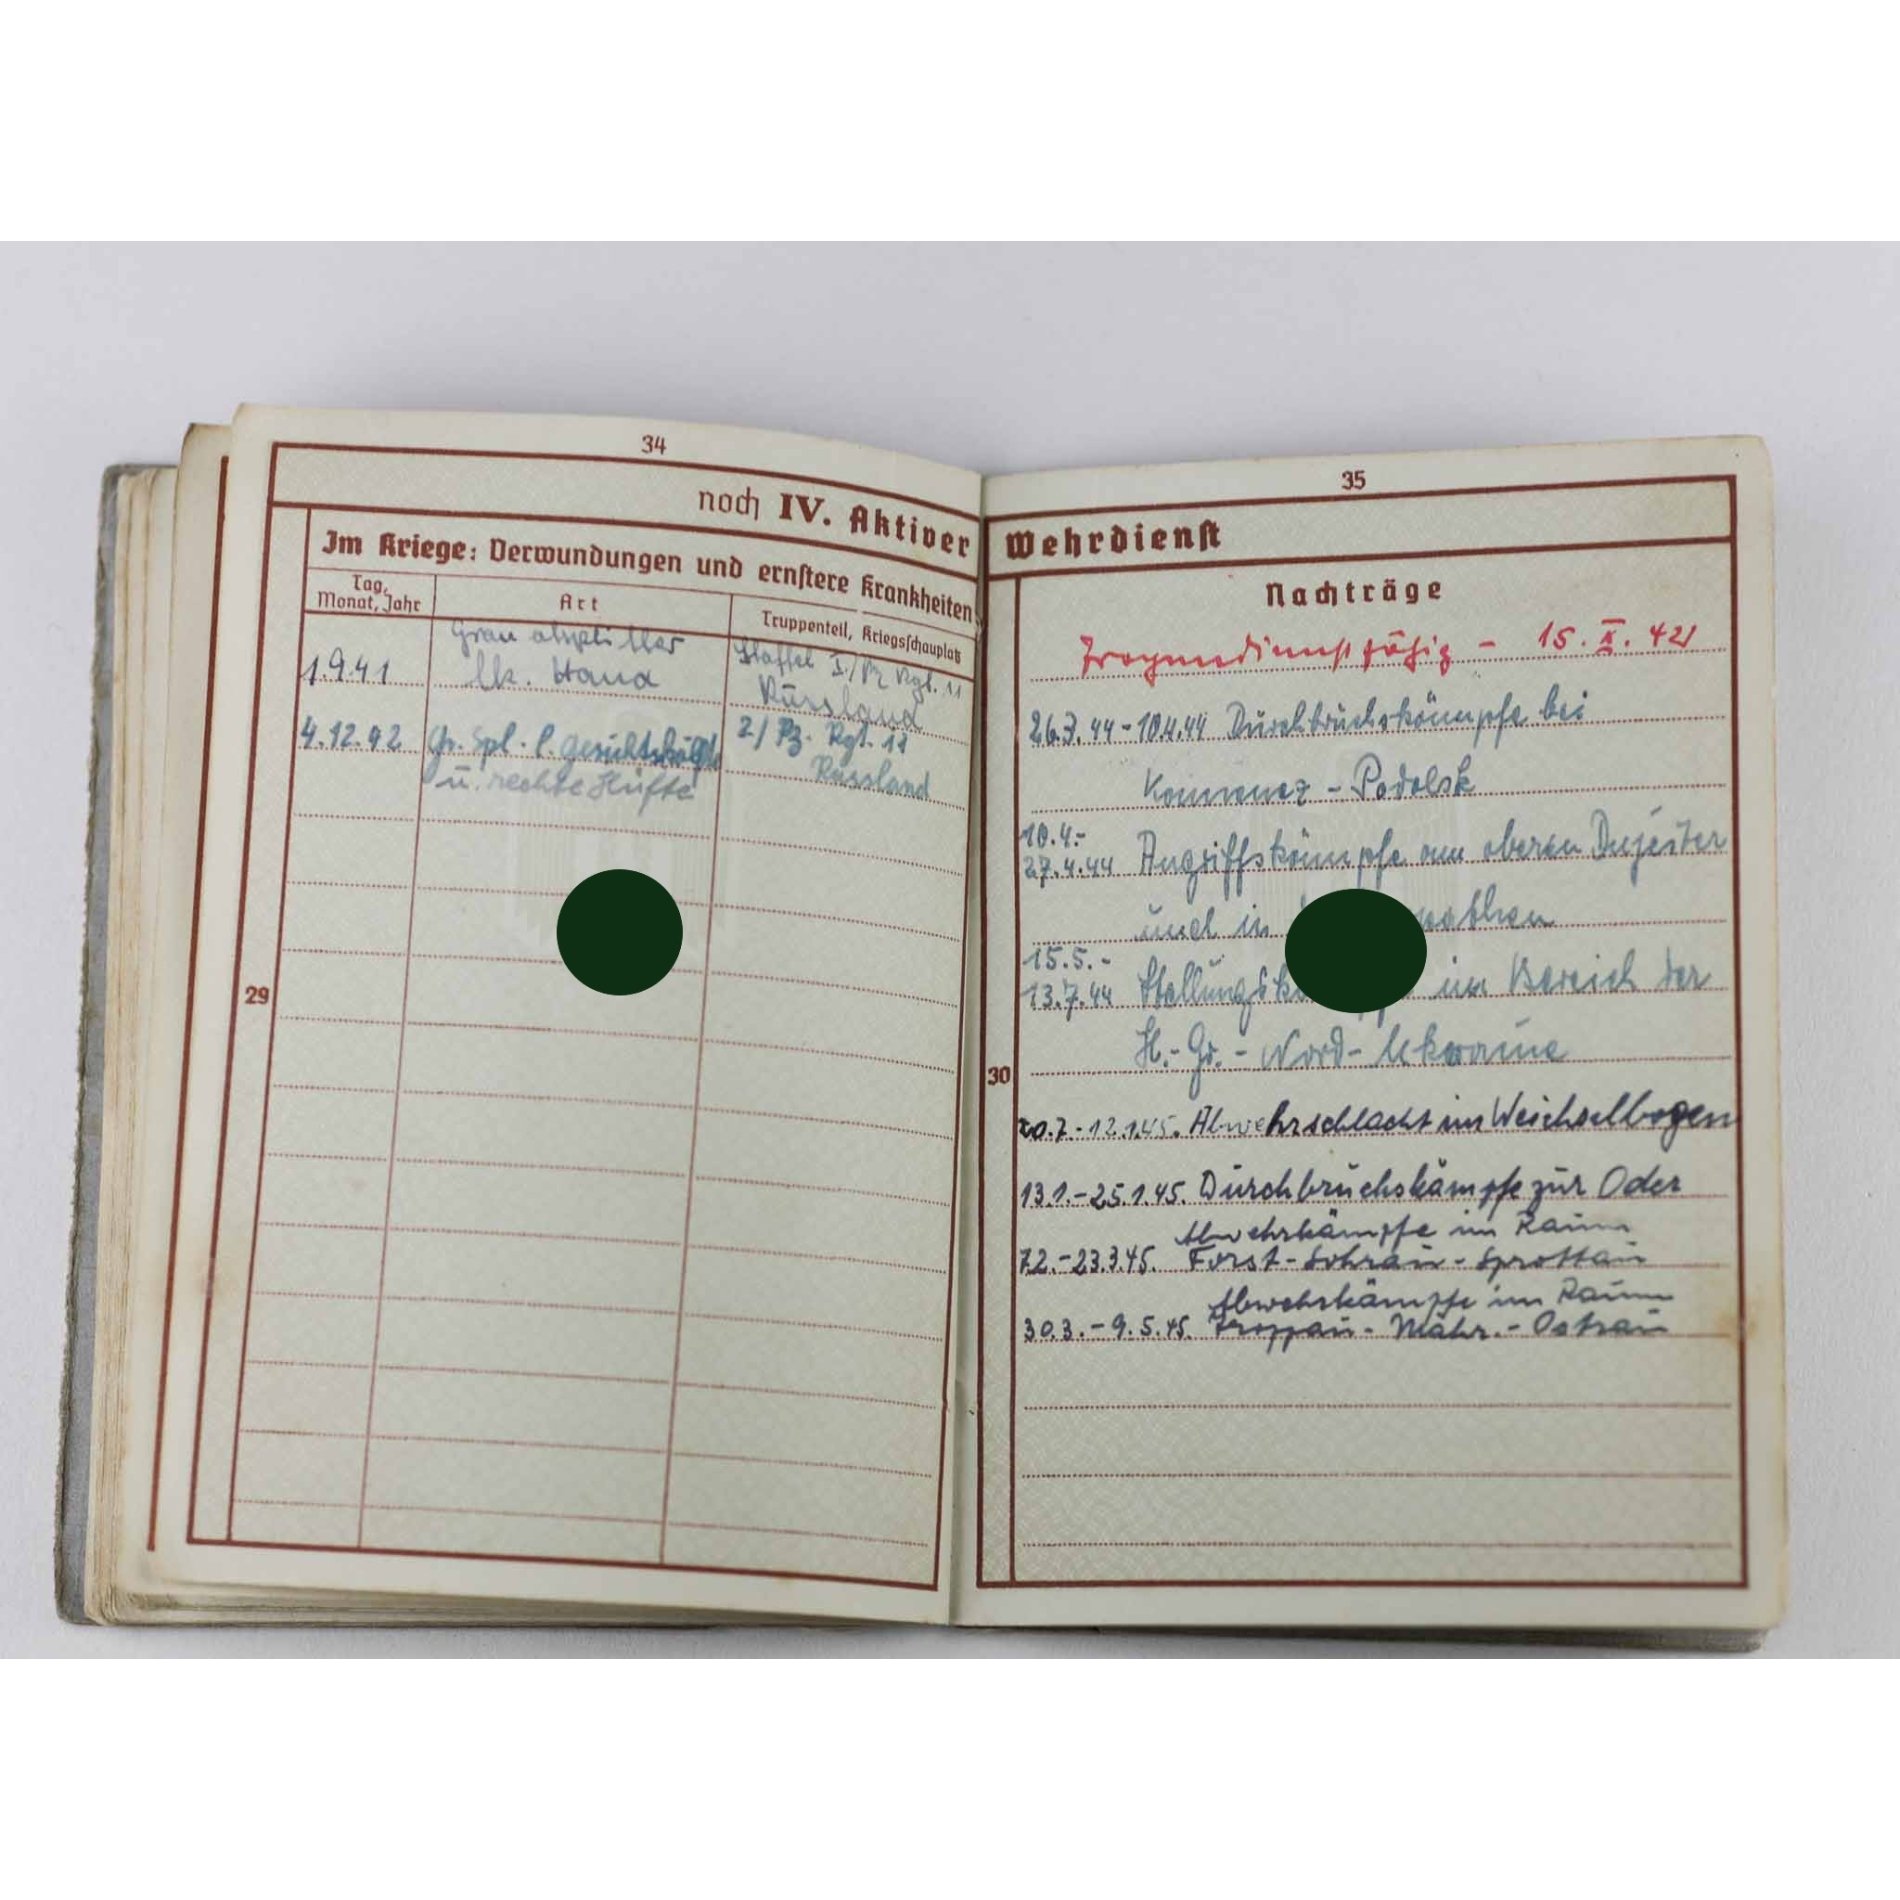 34
noch IV. Aktiver
Im Kriege: Verwundungen und ernstere Krankheiten
Tag, Monat, Jahr
Art
Truppenteil, Kriegsschauplatz
1.9.41
Granatsplitter
lk. Hand
Staffel I./Pz Rgt. 11
Russland
4.12.42
Gr. Spl. l. Gesichtshälfte
u. rechte Hüfte
2/ Pz. Rgt. 11
Russland
29
35
Wehrdienst
Nachträge
Tropendienstfähig - 15. X. 42
26.3.44-10.4.44 Durchbruchskämpfe bei
Kamenez - Podolsk
10.4.-
27.4.44 Angriffskämpfe am oberen Dnjester
und in
15.5.-
13.7.44 im Bereich der
H.-Gr.- Nord-Ukraine
30
20.7.-12.1.45. Abwehrschlacht im Weichselbogen
13.1.-25.1.45. Durchbruchskämpfe zur Oder
Abwehrkämpfe im Raum
7.2.-23.3.45. Forst-Sohrau-Sprottau
Abwehrkämpfe im Raum
30.3.-9.5.45. Troppau-Mähr.-Ostrau